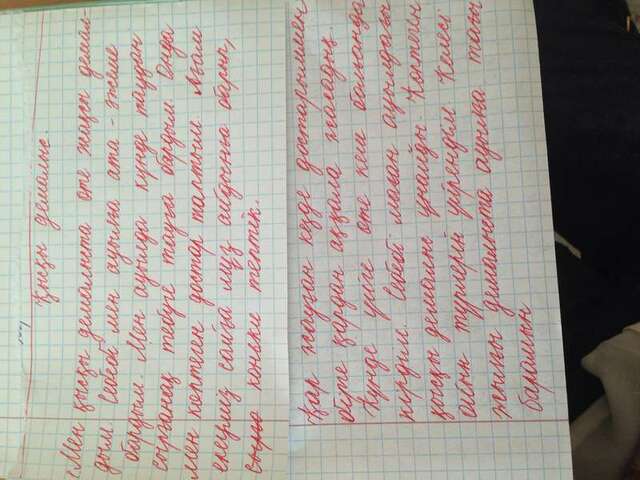 Қысқы демалыс.
Мен қысқы демалыста өте жақсы демал-
дым. Себебі мен ауылға ата - әжеме
бардым. Мен ауылда күнде таудан
сырғанақ тебуге тауға бардым. Онда
мен көптеген достар таптым. Ағам
екеуміз сайға мұз айдынға барып,
сырға коньки тептік.
Қар жауған кезде достарыммен
бірге қардан аққала жасадық.
Күнде үйге өте кеш болғанда
кірдім. Себебі маған ауылдағы
қысқы демалыс ұнайды. Көптеген
ойын түрлерін үйрендім. Келесі
жылғы демалыста ауылға тағы
барамын